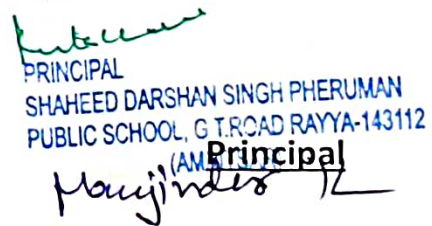 PRINCIPAL
SHAHEED DARSHAN SINGH PHERUMAN
PUBLIC SCHOOL, G.T.ROAD RAYYA-143112
Principal
Manjinder